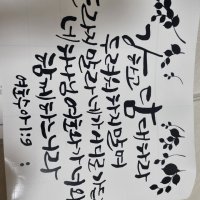 강하고 담대하라
두려워하지 말며
놀라지 말라 네가 어디로 가든
네 하나님 여호와가 너와
함께 하느니라
여호수아 1:9